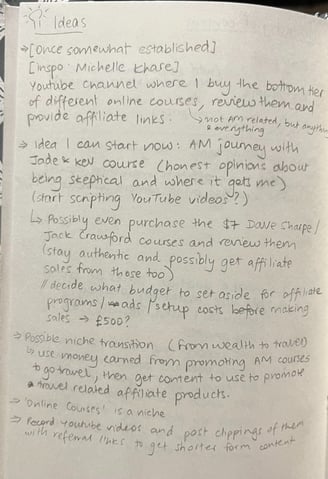 Ideas
→ [Once somewhat established]
[inspo: Michelle Khare]
Youtube channel where I buy the bottom tier
of different online courses, review them and
provide affiliate links. ↳ not AM related, but anything
& everything
→ Idea I can start now: AM journey with
Jade & Kev course (honest opinions about
being skeptical and where it gets me)
(start scripting YouTube videos?)
↳ Possibly even purchase the $7 Dave Sharpe/
Jack Crawford courses and review them
(stay authentic and possibly get affiliate
sales from those too)
// decide what budget to set aside for affiliate
programs / ads / setup costs before making
sales → £500?
→ Possible niche transition (from wealth to travel)
↳ use money earned from promoting AM courses
to go travel, then get content to use to promote
travel related affiliate products.
→ 'Online Courses' is a niche
→ Record youtube videos and post clippings of them
with referral links to get shorter form content